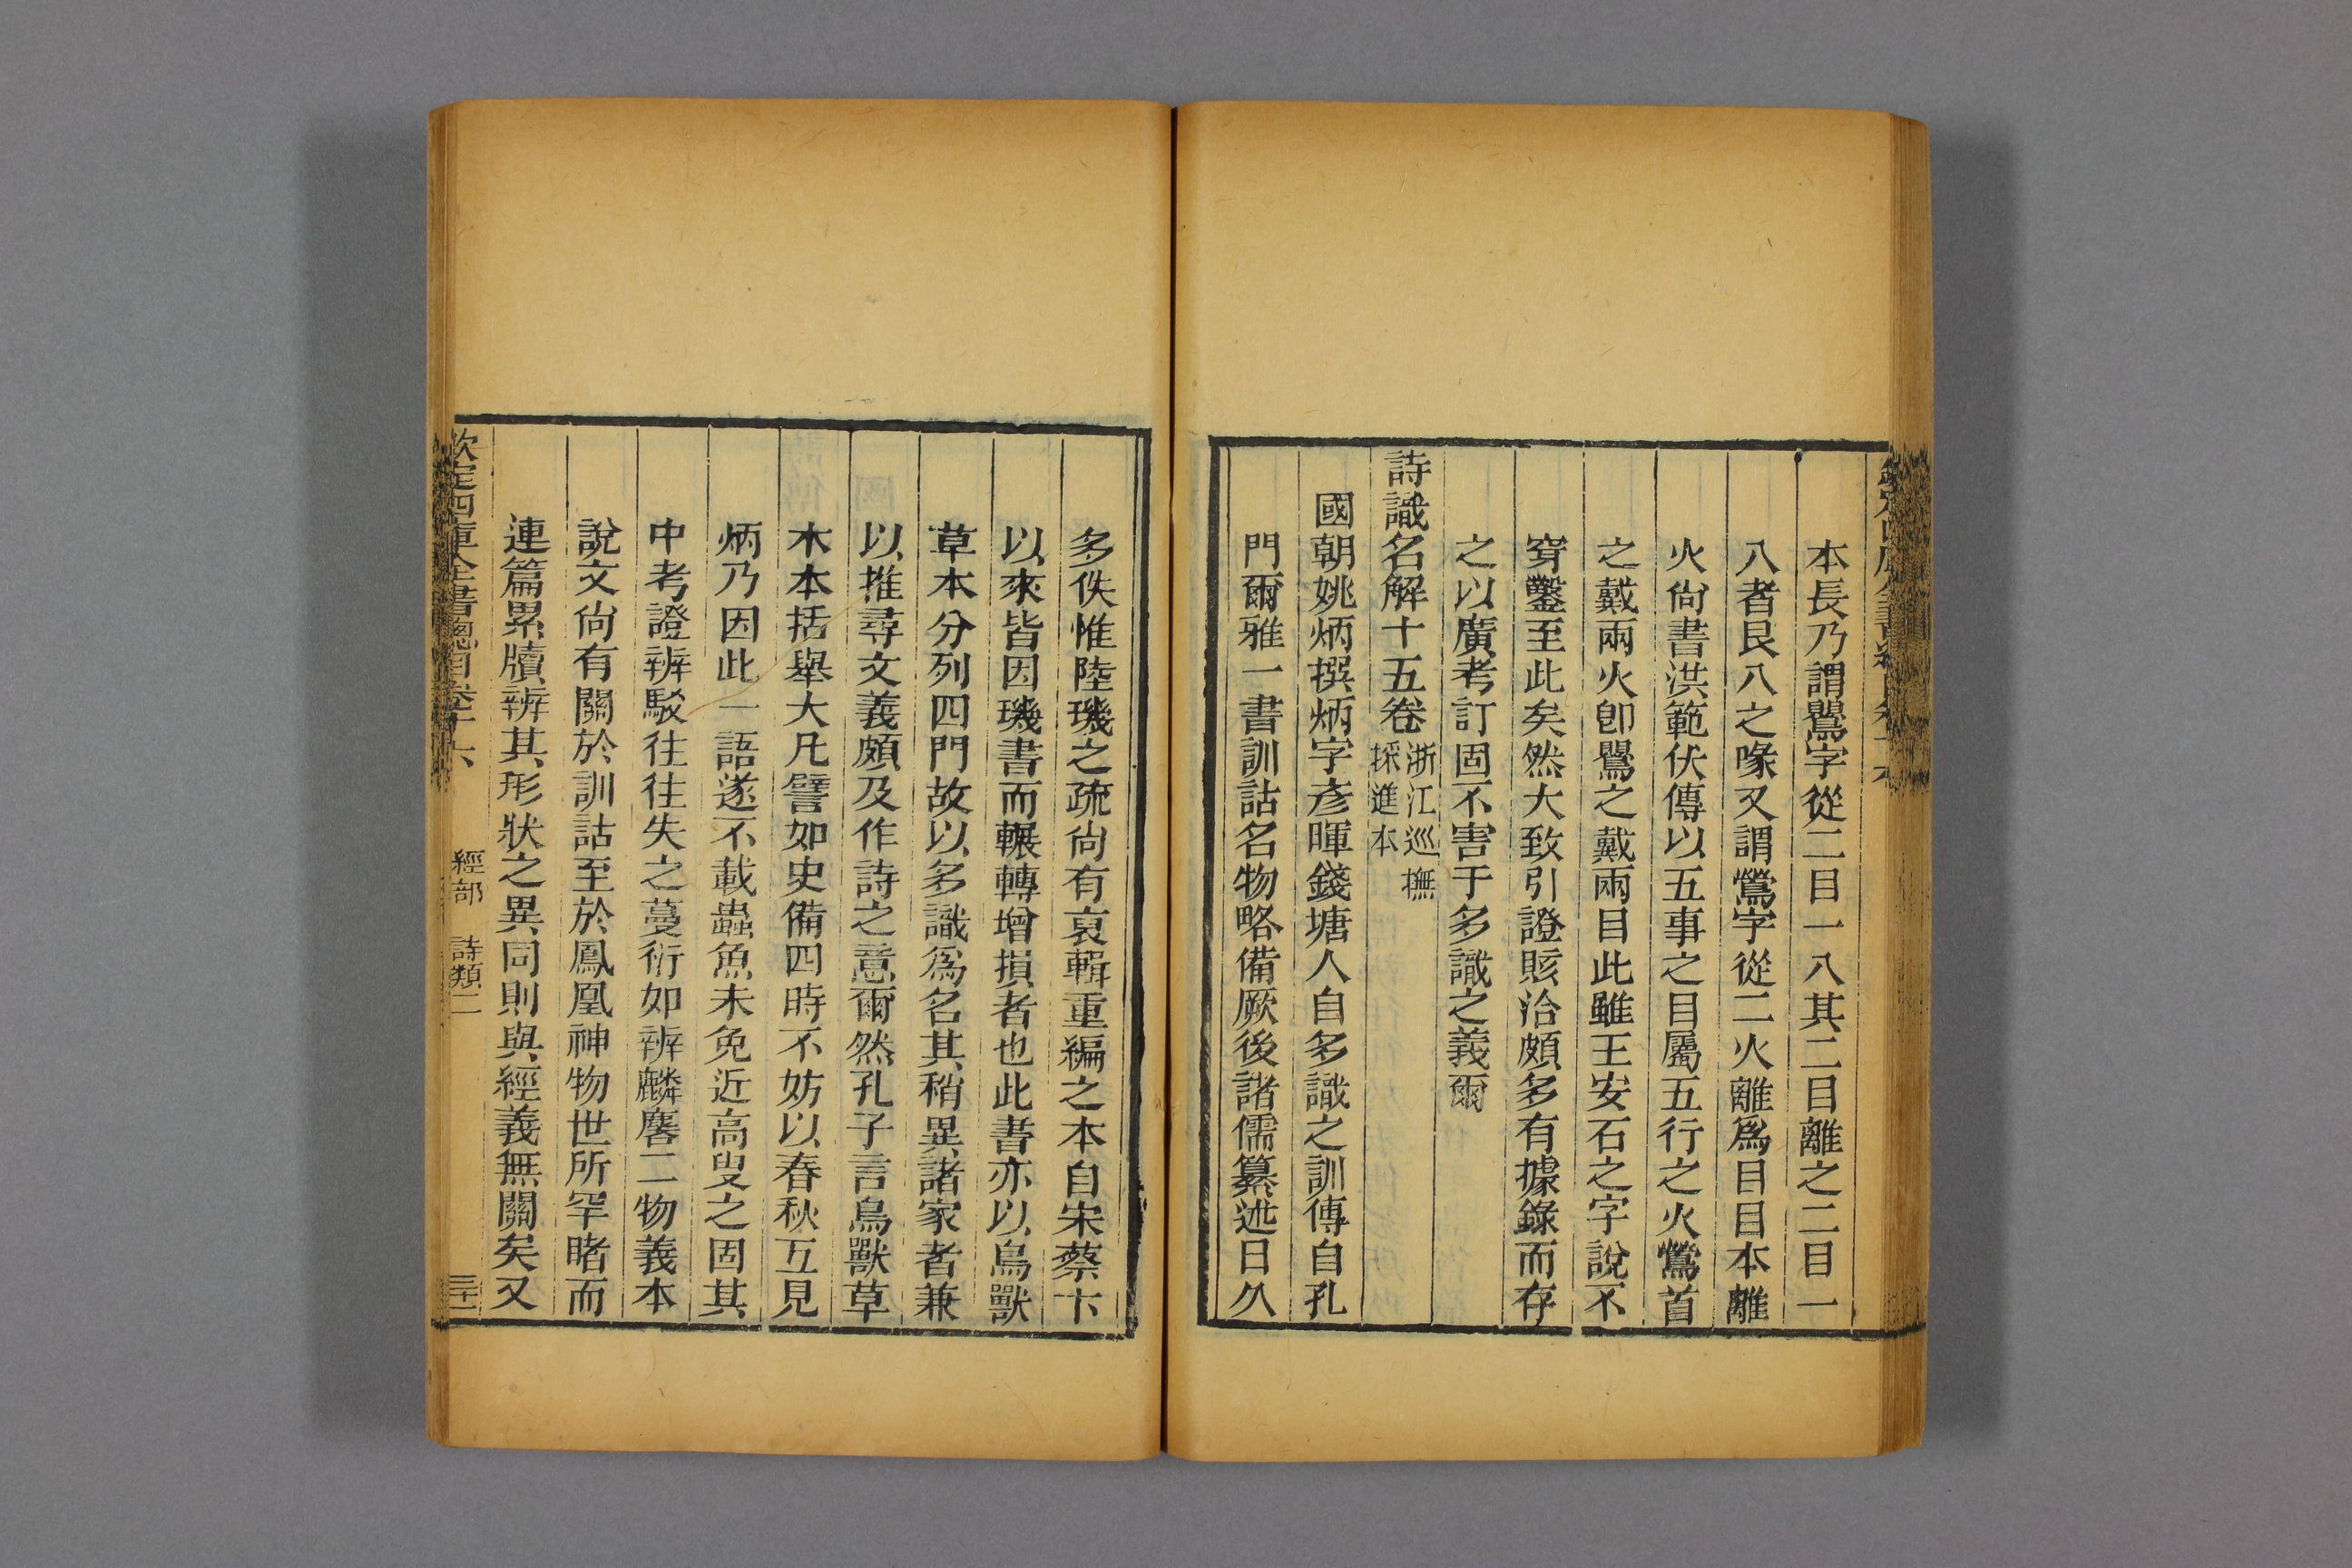 本長乃謂鸎字從二目一八其二目離之二目一
八者艮八之喙又謂鶯字從二火離爲目目本離
火尙書洪範伏傳以五事之目屬五行之火鶯首
之戴兩火卽鸎之戴兩目此雖王安石之字說不
穿鑿至此矣然大致引證賅洽頗多有據錄而存
之以廣考訂固不害于多識之義爾
詩識名解十五卷浙江巡撫
採進本
國朝姚炳撰炳字彥暉錢塘人自多識之訓傳自孔
門爾雅一書訓詁名物略備厥後諸儒纂述日久
多佚惟陸璣之疏尙有裒輯重編之本自宋蔡卞
以來皆因璣書而輾轉增損者也此書亦以鳥獸
草本分列四門故以多識爲名其稍異諸家者兼
以推尋文義頗及作詩之意爾然孔子言鳥獸草
木本括舉大凡譬如史備四時不妨以春秋互見
炳乃因此一語遂不載蟲魚未免近高叟之固其
中考證辨駁往往失之蔓衍如辨麟麐二物義本
說文尙有關於訓詁至於鳳凰神物世所罕睹而
連篇累牘辨其形狀之異同則與經義無關矣又
欽定四庫全書總目卷十六 經部 詩類二